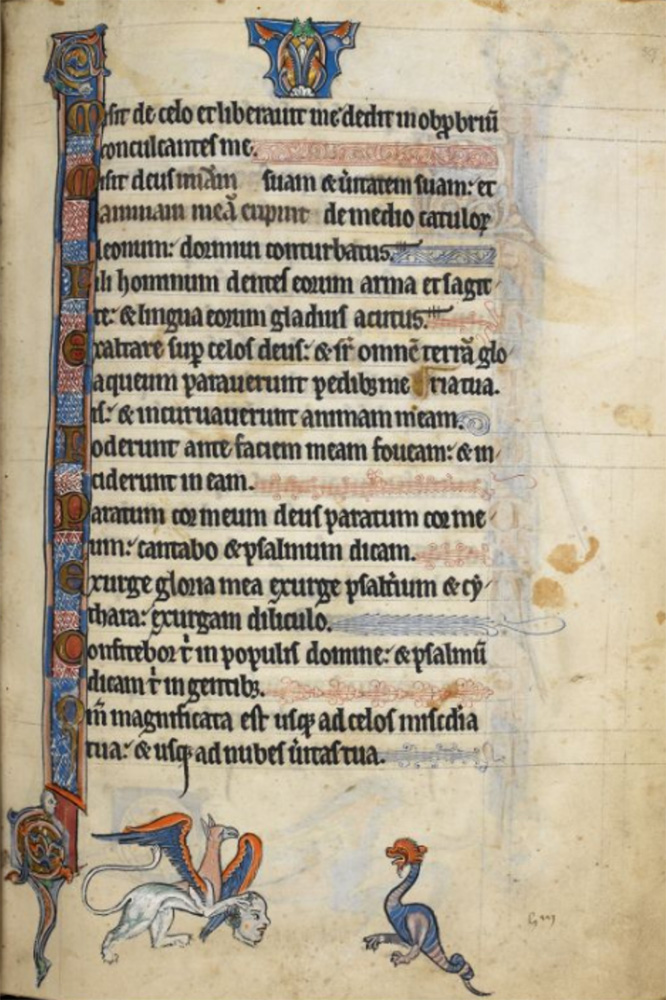 Misit de celo et liberauit me: dedit in obꝓbriū
conculcantes me.
Misit deus miām suam & ūitatem suam: et
animam meā eripuit de medio catuloꝝ
leonum: dormiui conturbatus.
Filii hominum dentes eorum arma et sagit
te: & lingua eorum gladius acutus.
Exaltare suꝑ celos deus: & omnē terrā glo
aqueum parauerunt pedibꝫ me ria tua.
is: & incuruauerunt animam meam.
Foderunt ante faciem meam foueam: & in
ciderunt in eam.
Paratum cor meum deus paratum cor me
um: cantabo & psalmum dicam.
Exurge gloria mea exurge psaltium & cy
thara: exurgam diliculo.
Confitebor t̄ in populis domine: & psalmū
dicam t̄ in gentibꝫ.
Qm̄ magnificata est usqꝫ ad celos miscd̄ia
tua: & usqꝫ ad nubes ūitas tua.